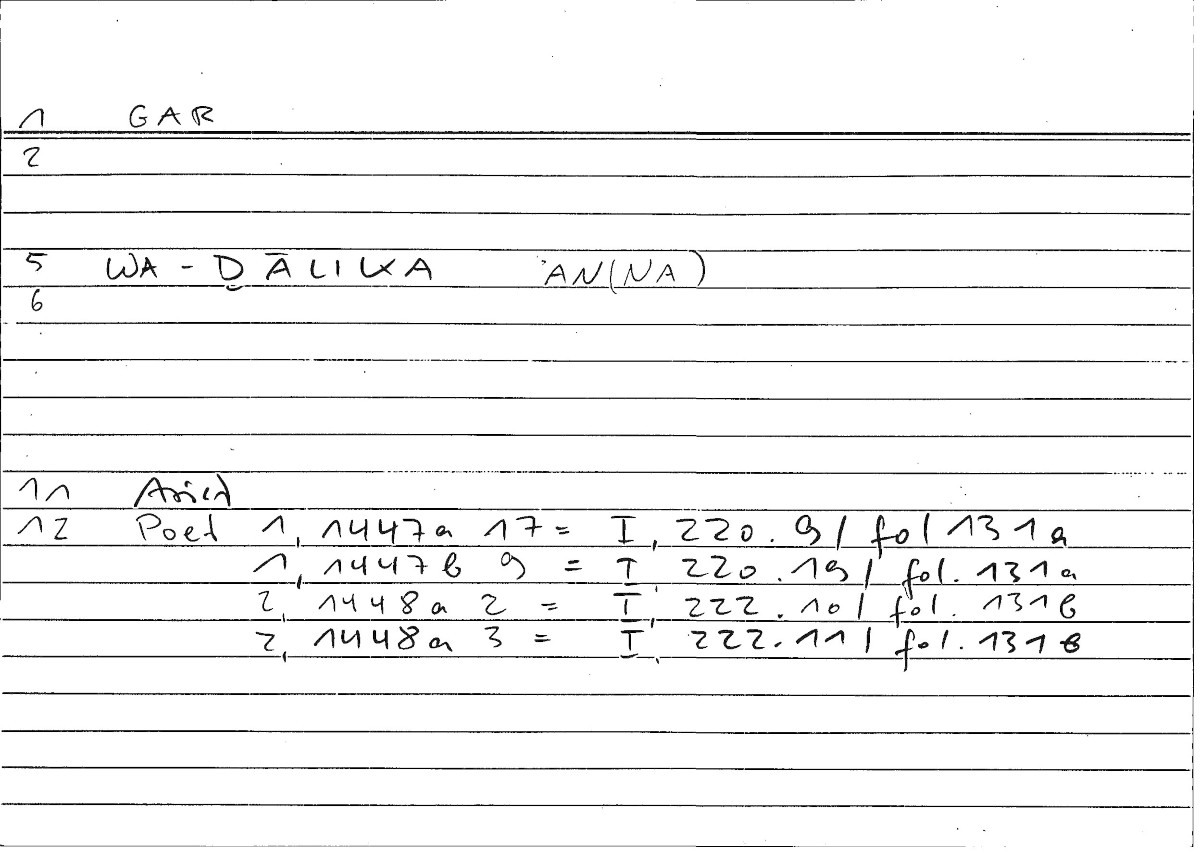 1 GAR
2
5 WA - ḎĀLIKA ʾAN(NA)
6
11 Arist
12 Poet 1, 1447a 17 = I, 220.9 / fol 131a
1, 1447b 9 = I, 220.19 / fol. 131a
2, 1448a 2 = I, 222.10 / fol. 131b
2, 1448a 3 = I, 222.11 / fol. 131b